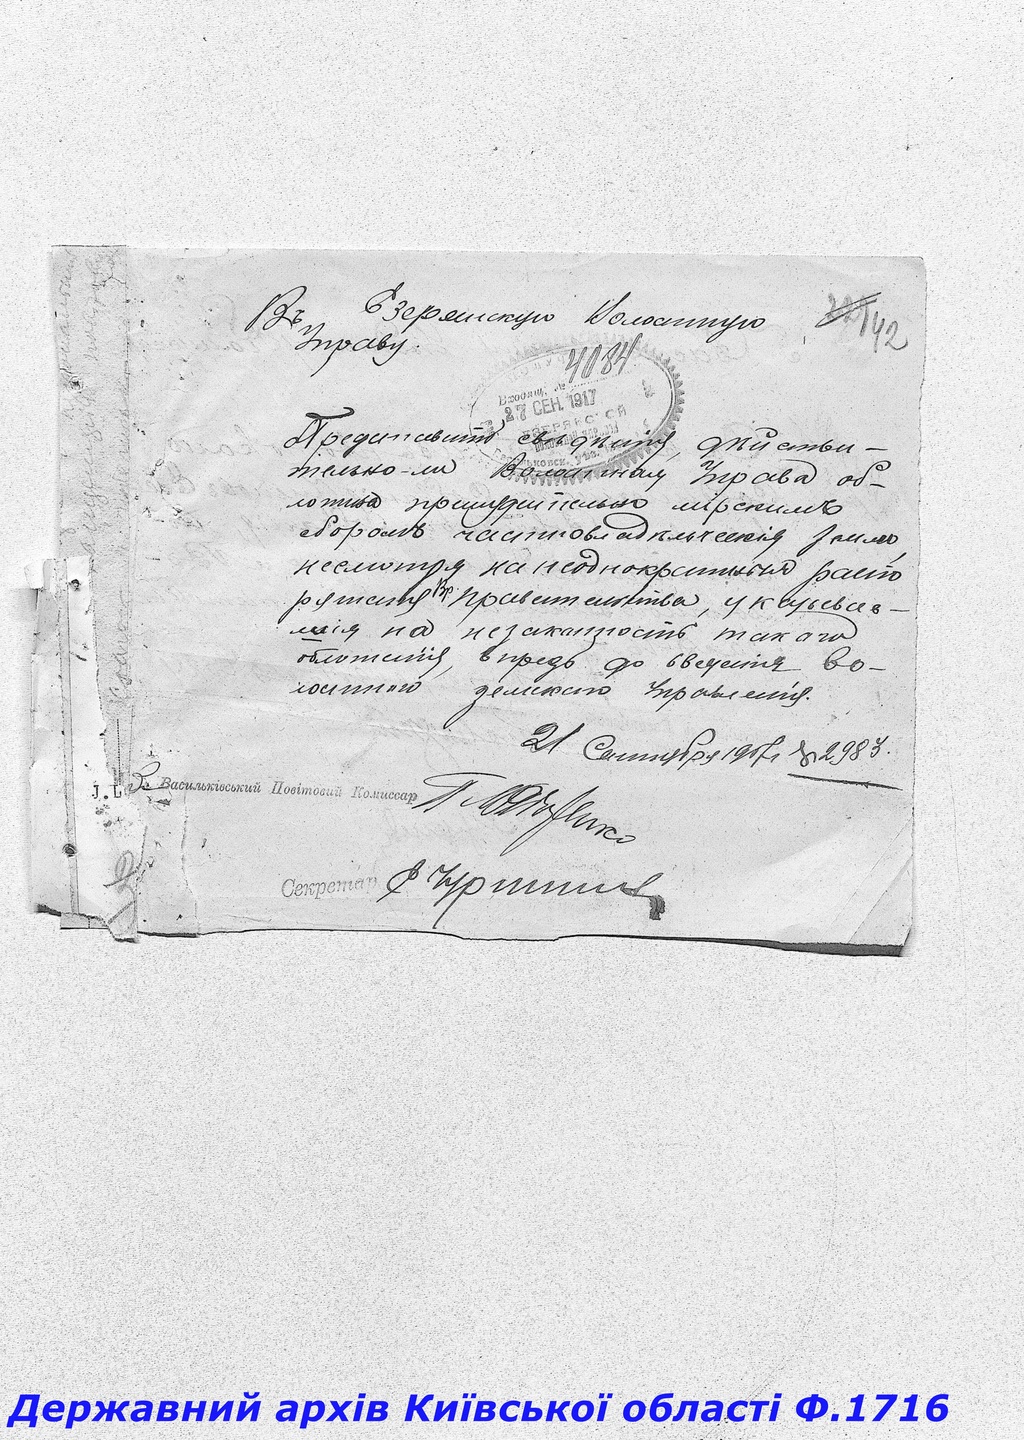 Въ Езерянскую Волостную
Управу.
142
4084
Входящ. №
27 СЕН. 1917
ЕЗЕРЯНСКОЙ
Представить свѣдѣнія, дѣйстви-
тельно-ли Волостная Управа об-
ложила принудительно мірскимъ
сборомъ частновладѣльческія земли,
несмотря на неоднократныя распо
ряженія Вр Правительства, указывав-
шія на незаконность такого
обложенія, впредь до введенія Во-
лостного земскаго Управленія.
21 Сентября 1917 г. № 2983.
Васильківський Повітовий Комиссар
Секретар
Державний архів Київської області Ф.1716